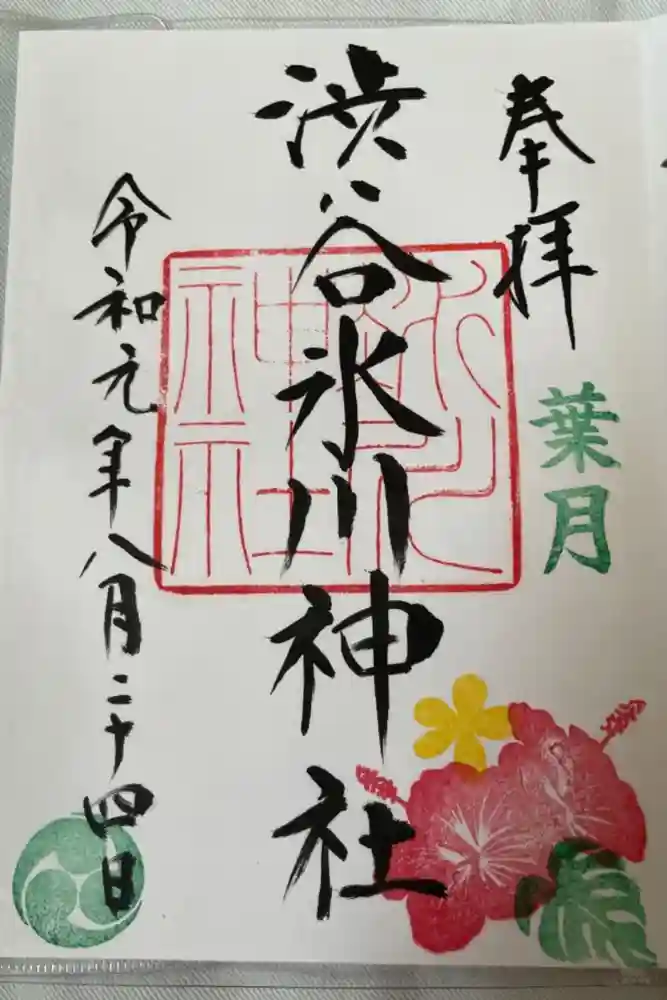 奉拝
葉月
渋谷氷川神社
氷川
神社
令和元年八月二十四日